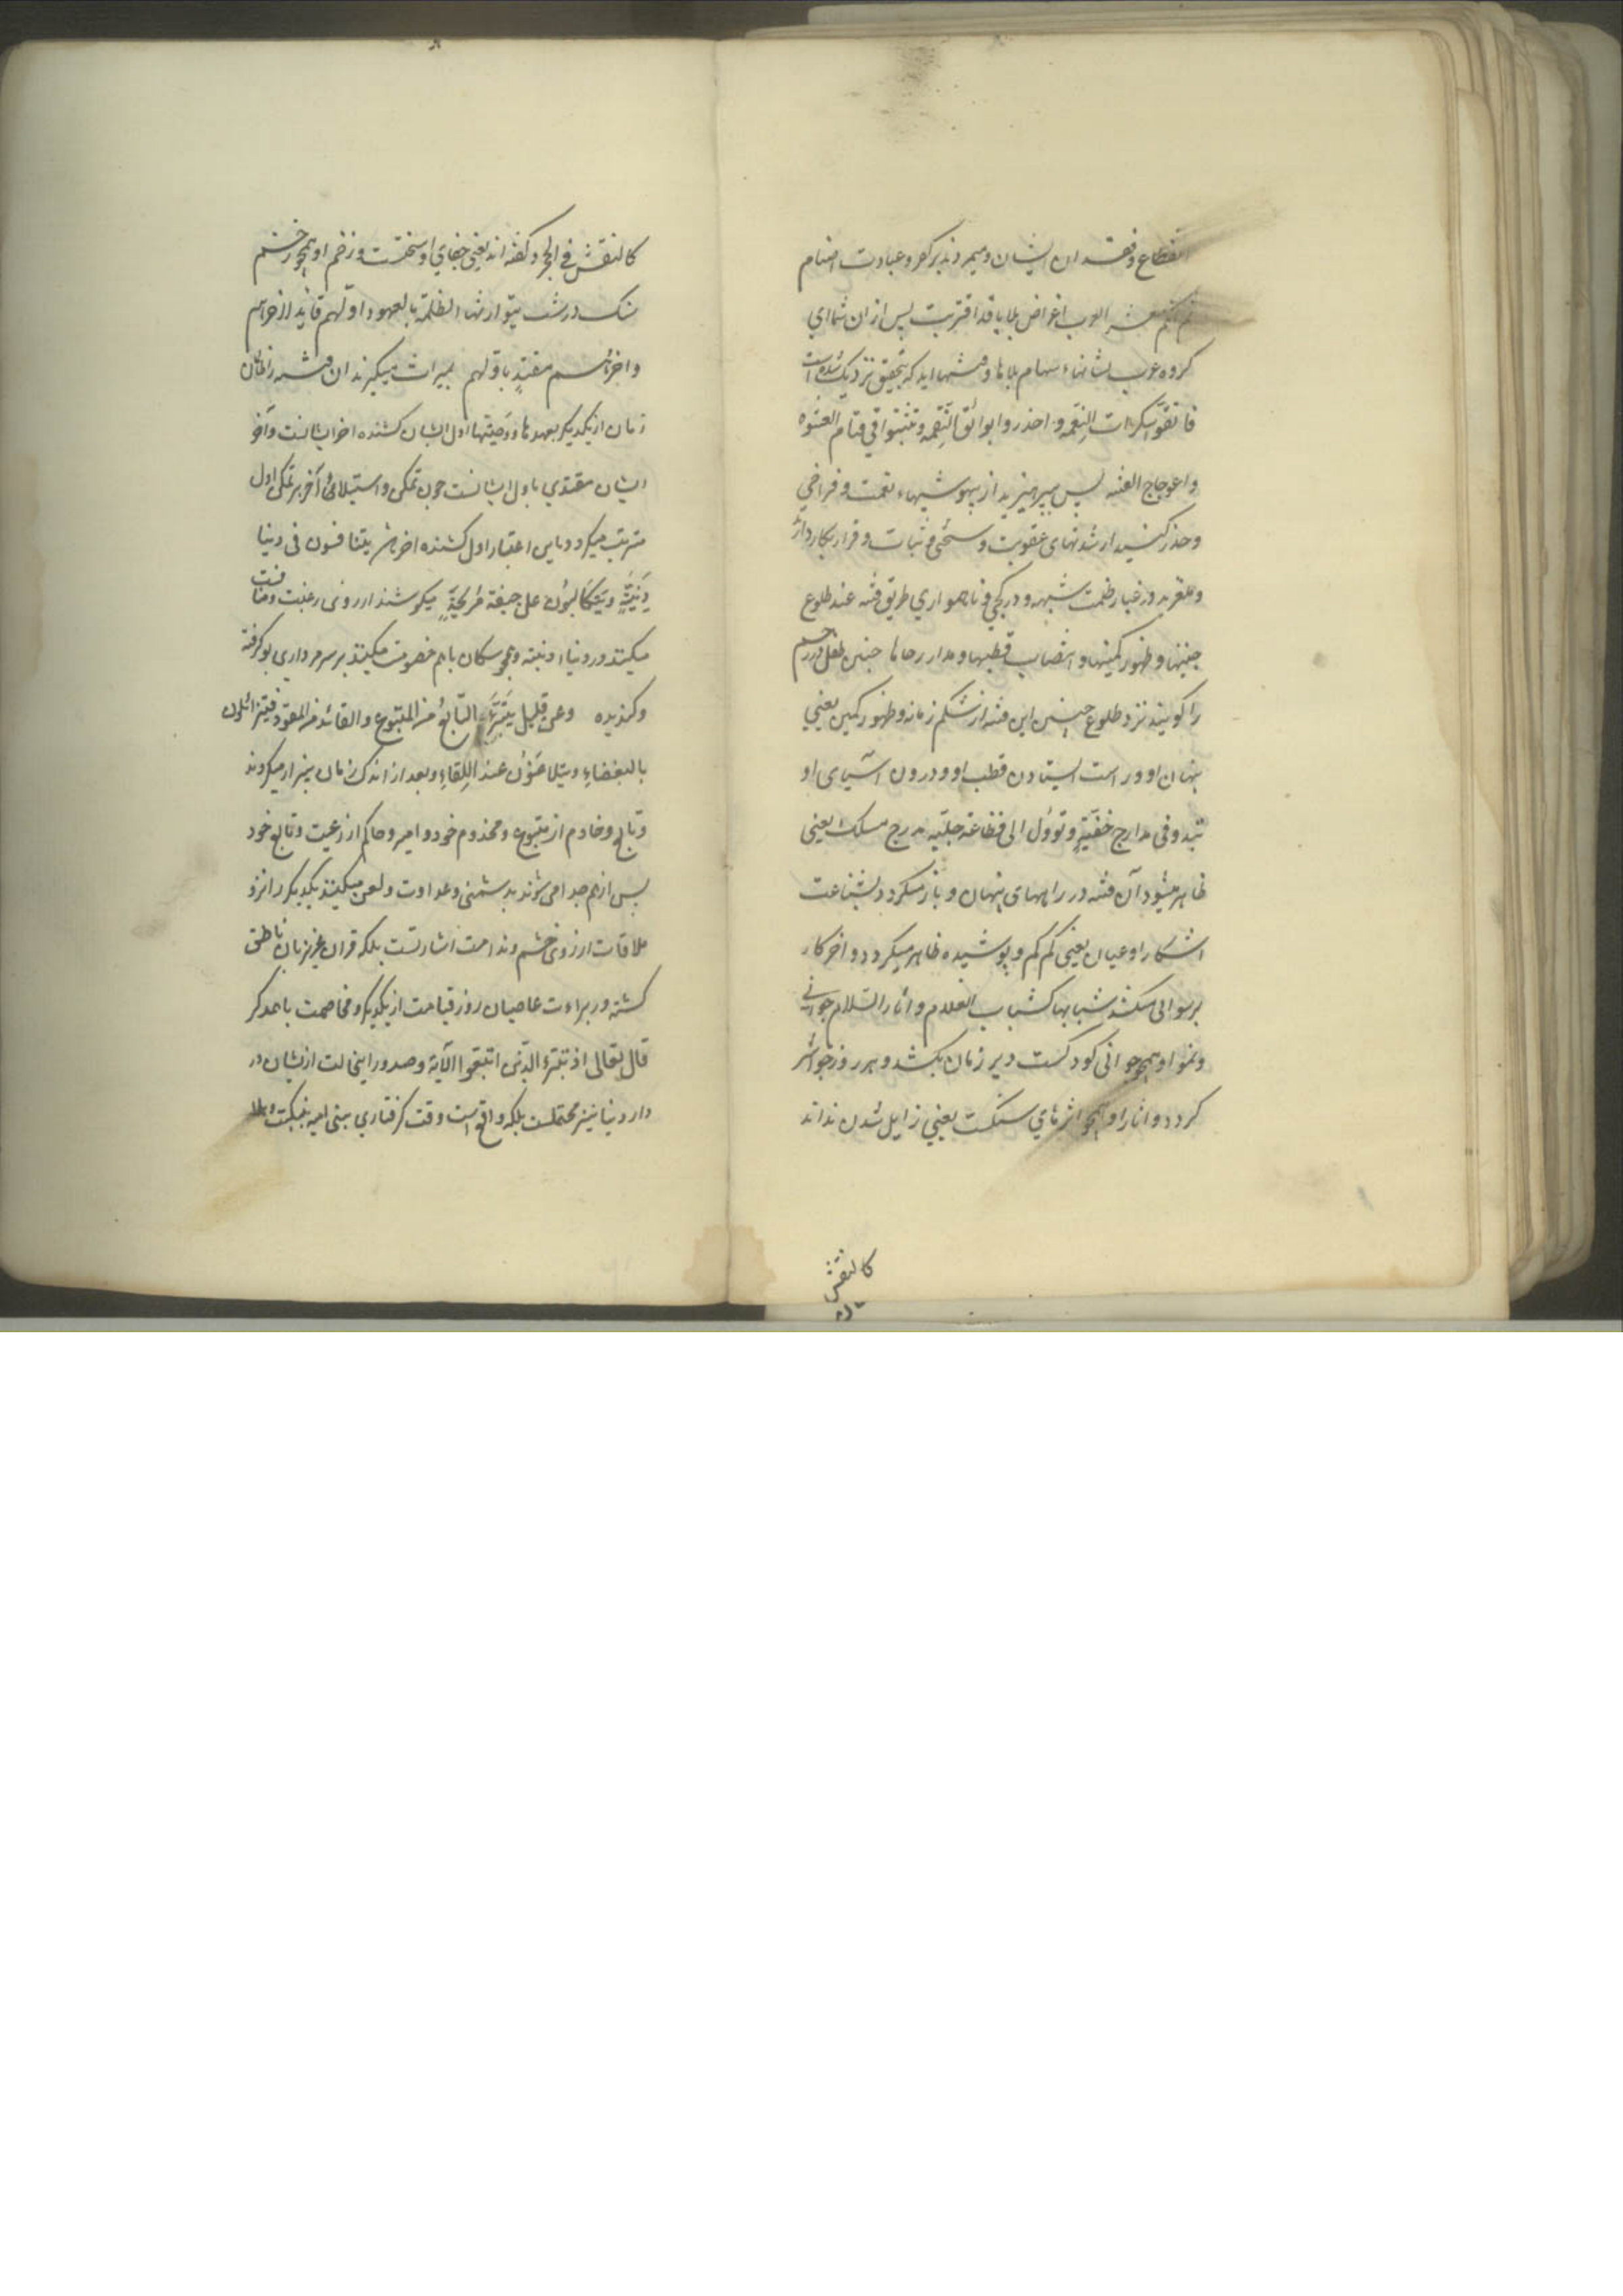 انقطاع و فقدان ایشان و میمیرند بر کفر و عبادت اصنام
ثم انکم معشر العرب اغراض بلایا قد اقتربت پس از ان شما ای
کروه عرب نشانهاء سهام بلاها و فتنهااید که بتحقیق نزدیک شده است
فاتقوا سکرات النعمه و احذروا بوائق النقمه و تثبتوا فی قتام العشوه
و اعوجاج الفتنه پس بپرهیزید از بیهوشیهاء نعمت و فراخی
و حذر کنید از شدتهای عقوبت و سختی و ثبات و قرار بکار دارید
و ملغزید در غبار ظلمت شبهه و در کجی و ناهمواری طریق فتنه عند طلوع
جنینها و ظهور کمینها و انتصاب قطبها و مدار رحاها جنین طفل در رحم
را کویند نزد طلوع جنین این فتنه از شکم زمانه و ظهور کمین یعنی
پنهان او و راست ایستادن قطب او و درون اسیای او
تبدو فی مدارج خفیّةٍ و تؤول الی فظاعة جلیّه مدرج مسلک یعنی
ظاهر میشود آن فتنه در راههای پنهان و باز میکردد بشناعت
اشکارا و عیان یعنی کم کم و پوشیده ظاهر میکردد و اخر کار
برسوائی میکشد شبابها کشباب الغلام و اثارها کاثار السّلام جوانی
و نمو او همچو جوانی کودکست دیر زمان بکشد و هر روز جوانتر
کردد و اثار او همچو اثرهای سنکست یعنی زایل شدن نداند
کالنقش
کالنقش فی الحجر و کفته اند یعنی جفای او سختست و زخم او همچو زخم
سنک درشت یتوارثها الظلمة بالعهود اوّلهم قاید لاخرهم
و اخرهم مقتدٍ باوّلهم بمیراث میکیرند ان فتنه را ظالمان
زمان از یکدیکر بعهدها و وصیتها اول ایشان کشنده اخر ایشانست و آخر
ایشان مقتدی باول ایشانست چون تمکن و استیلائ آخر بر تمکن اول
مترتب میکردد باین اعتبار اول کشنده اخر باشد یتنافسون فی دنیا
دَنِیّةٍ و یَتَکالَبُون علی جیفة مُریحَةٍ میکوشند از روی رغبت و منافست
میکنند در دنیاء دنیّه و همچو سکان باهم خصومت میکنند بر سر مرداری بو کرفته
و کندیده و عن قلیل یَتَبَرّءُ التّابعُ من المتبوع و القائد من المقود فیتزائلون
بالبغضاءِ و یتلاعَنُون عند اللِقاءِ و بعد از اندک زمان بیزار میکردند
و تابع و خادم از متبوع و مخدوم خود و امیر و حاکم از رعیت و تابع خود
پس از هم جدا می شوند بدشمنی و عداوت و لعن میکنند یکدیکر را نزد
ملاقات از روی خشم و ندامت اشارتست بلکه قران عزیز بان ناطق
کشته در براءت عاصیان روز قیامت از یکدیکر و مخاصمت با همدکر
قال تعالی اذ تبرّء الّذین اتبعوا الآیة و صدور اینحالت ازیشان در
دار دنیا نیز محتملست بلکه واقع است وقت کرفتاری بنی امیه